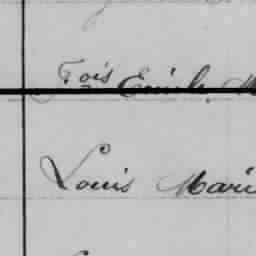 Fois Emile M
Louis Mari